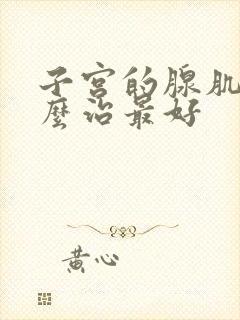 子宫的腺肌
麼治最好
黄心